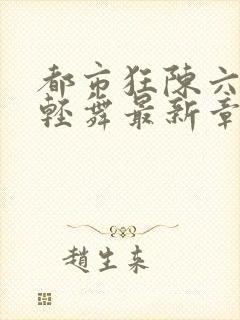 都市狂陈六
轻舞最新章
趙生来